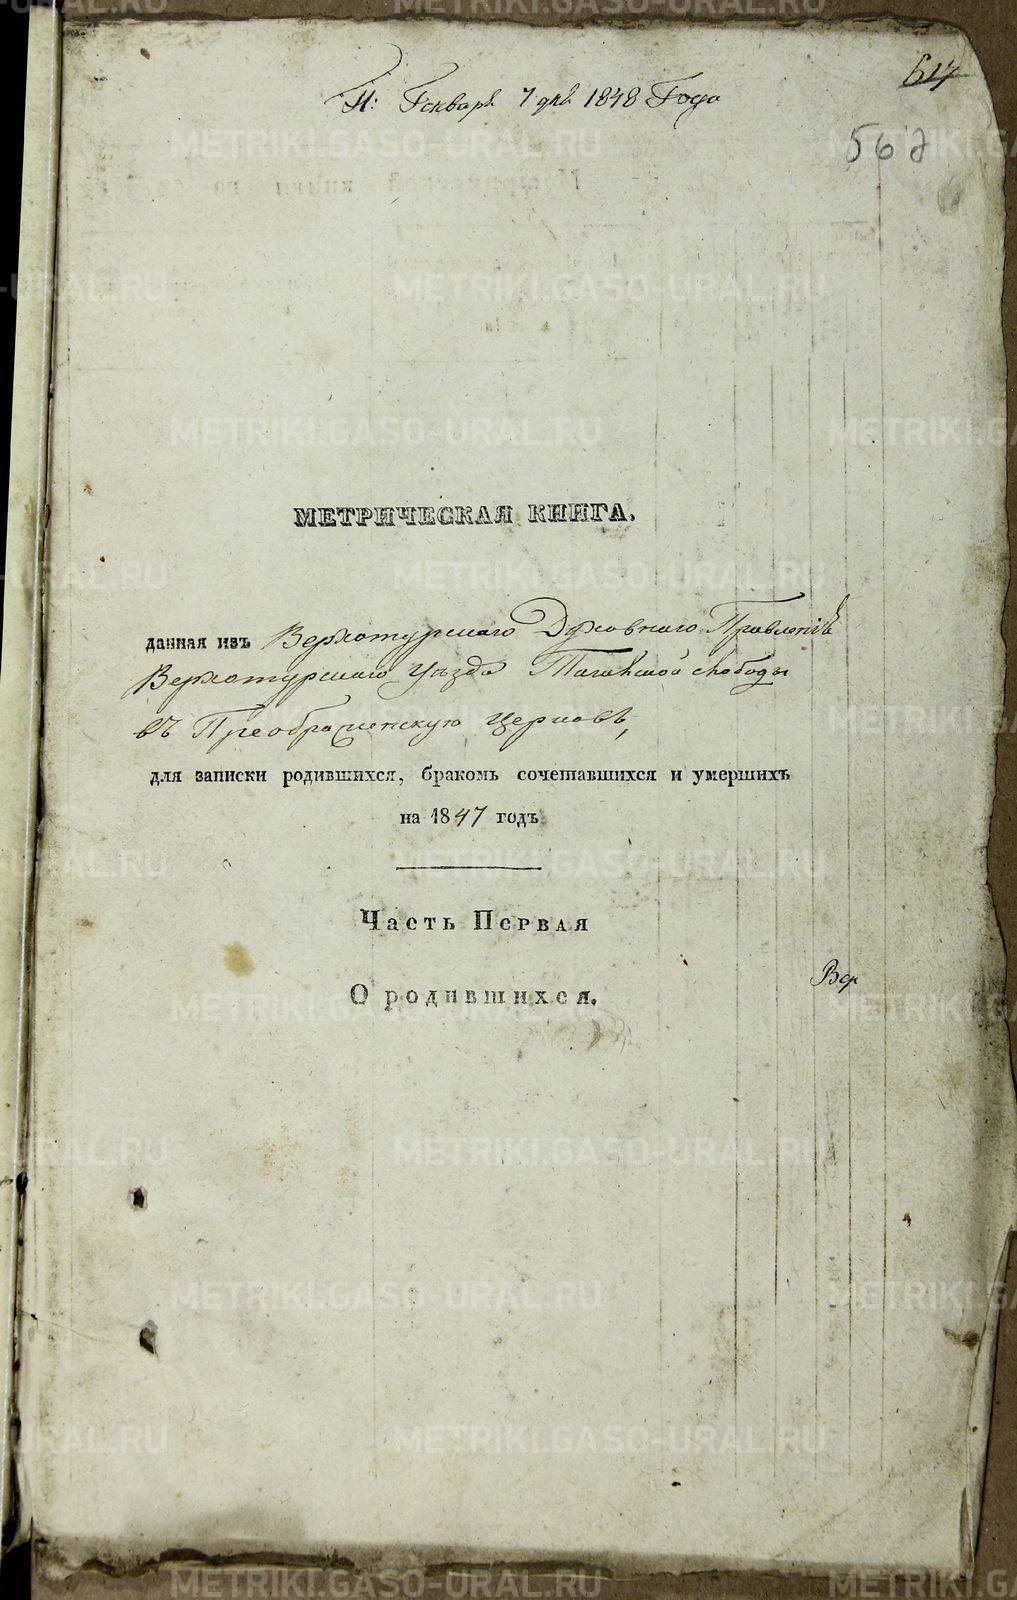 Генваря 7 дня 1848 Года
517
562
МЕТРИЧЕСКАЯ КНИГА.
данная изъ Верхотурскаго Духовнаго Правленія
Верхотурскаго Уѣзда Тагильской слободы
въ Преображенскую церковь,
для записки родившихся, бракомъ сочетавшихся и умершихъ
на 1847 годъ
Часть Первая
О родившихся.
METRIKI.GASO-URAL.RU